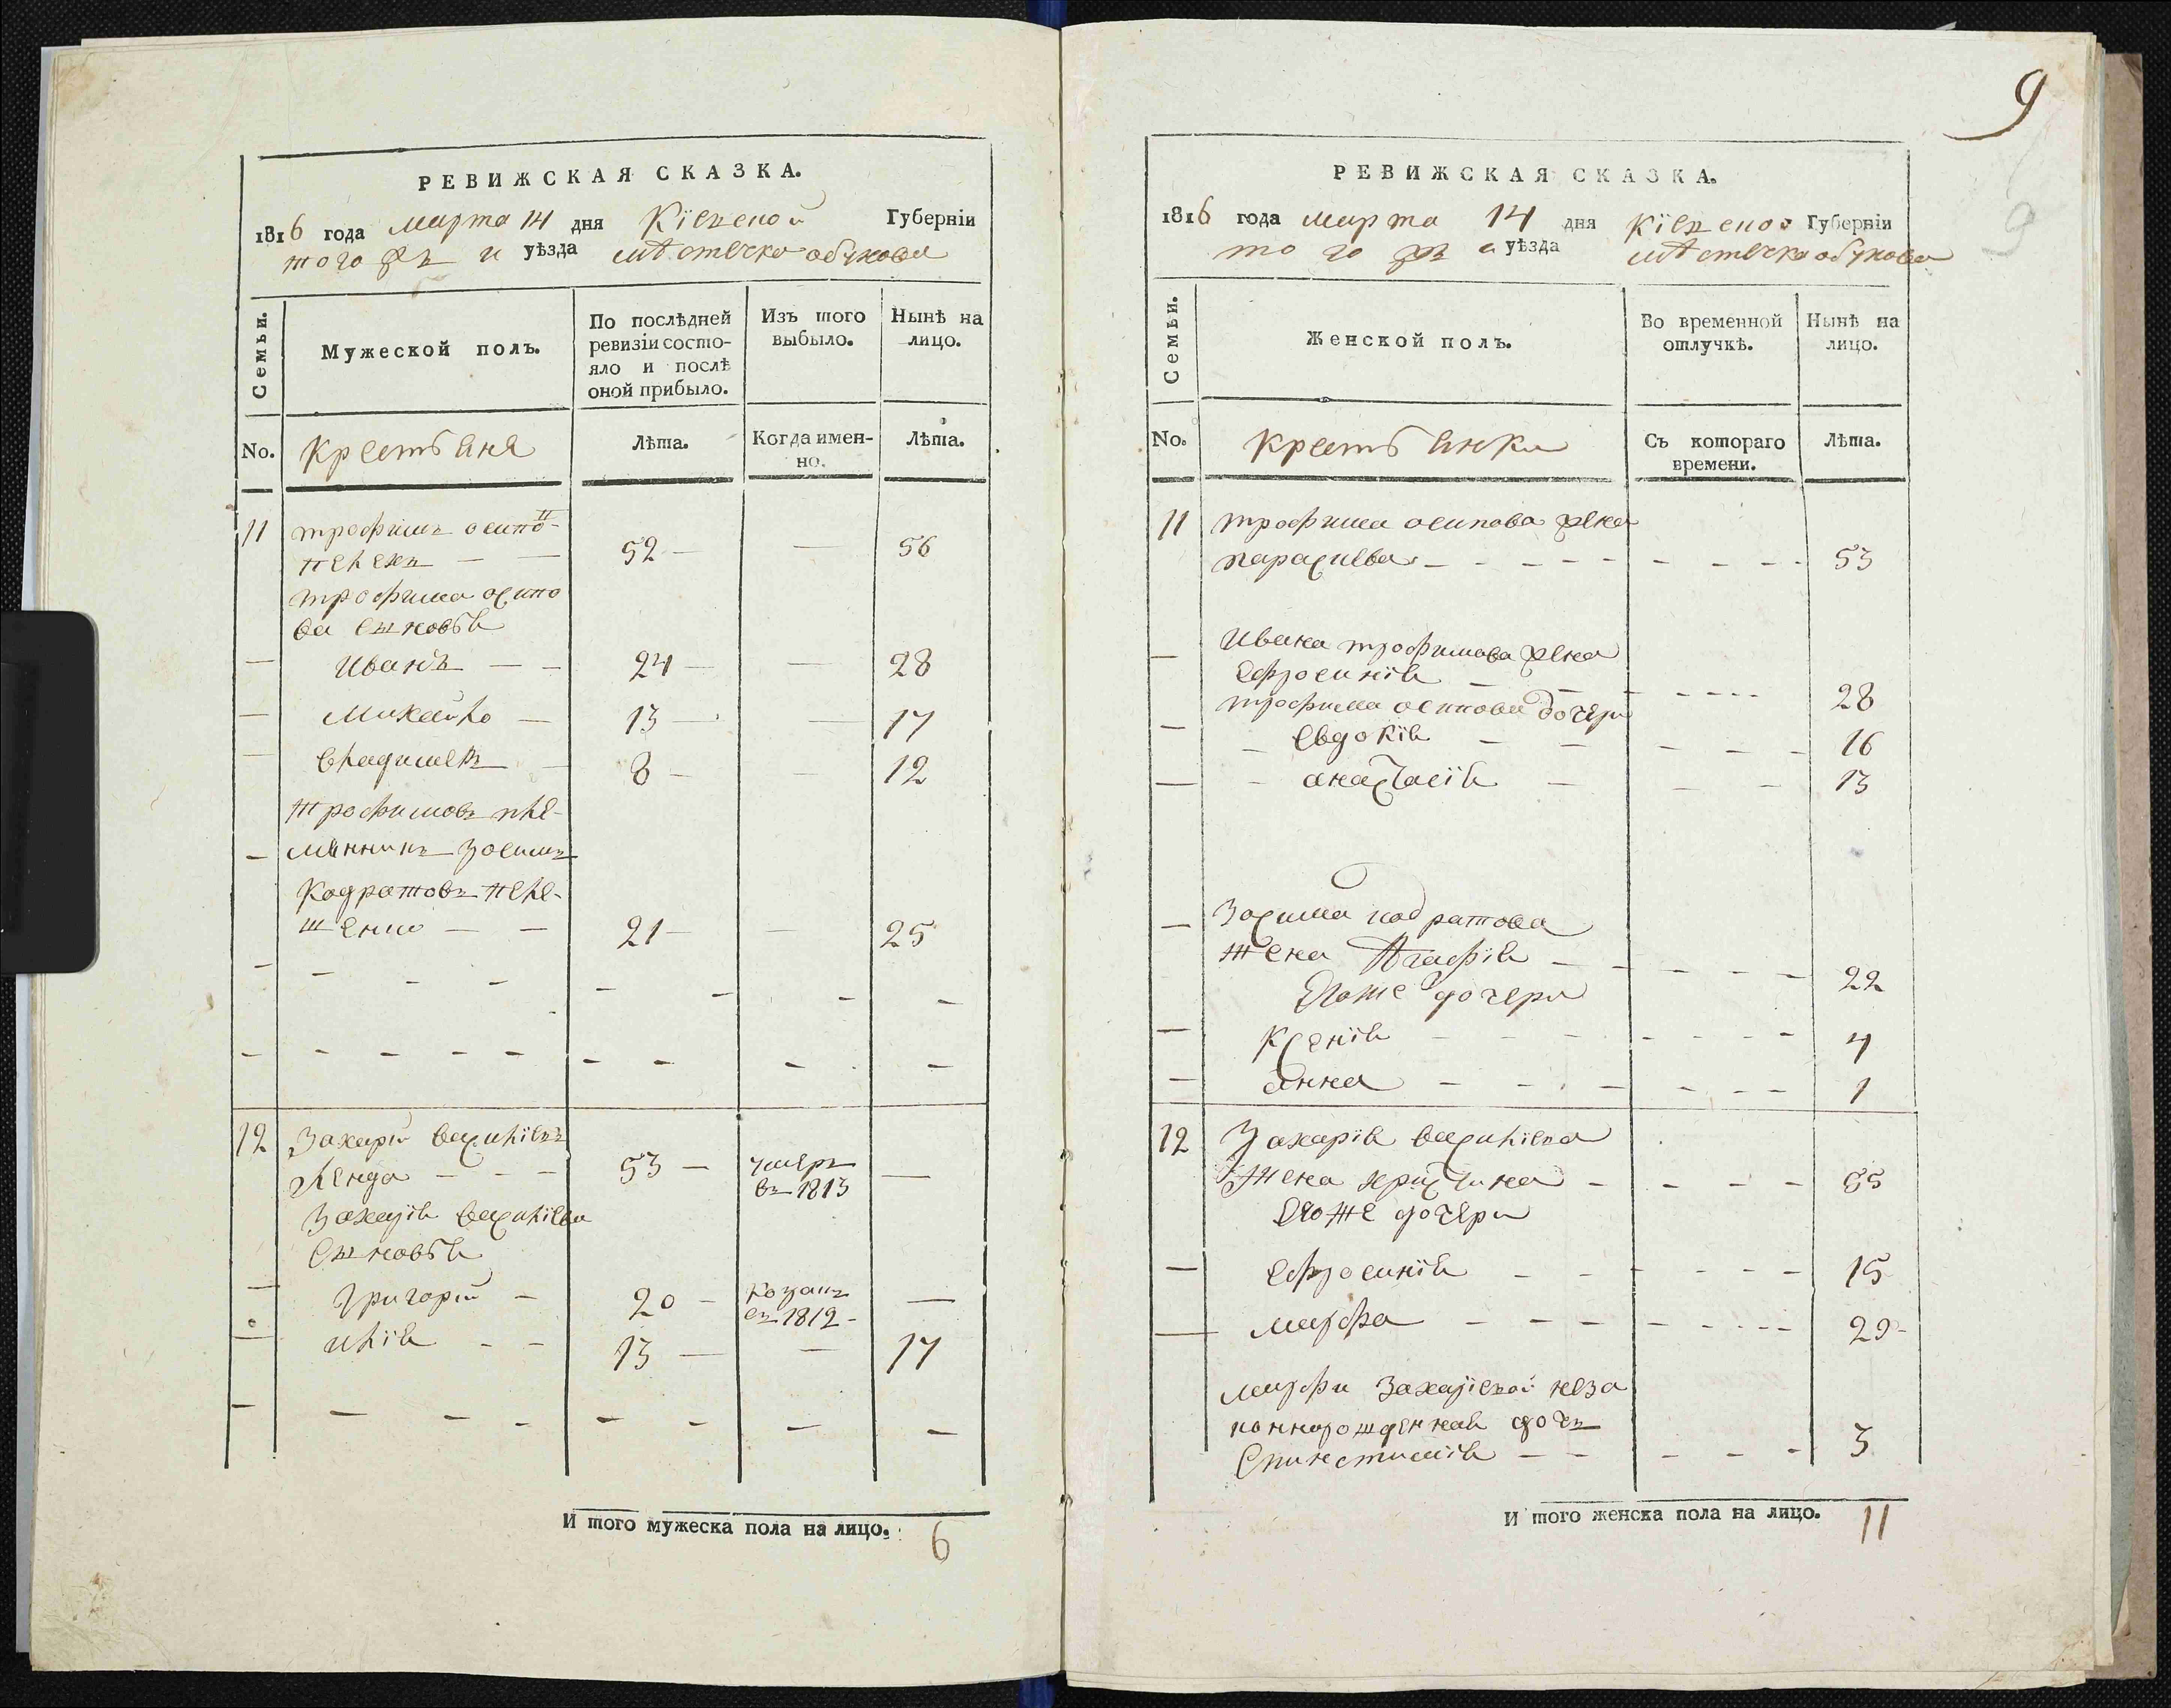 РЕВИЖСКАЯ СКАЗКА.
1816 года марта 14 дня Кіевской Губерніи
того жъ и уѣзда мѣстечка обухова
Семьи.
Мужеской полъ.
По послѣдней ревизіи состо-
яло и послѣ
оной прибыло.
Изъ того
выбыло.
Нынѣ на
лицо.
No.
Крестьяня
Лѣта.
Когда имен-
но.
Лѣта.
11 трофимъ осипо
52 — — 56
трофима осипо
ва сыновья
— Иванъ — — 24 — — 28
— Михайло — 13 — — 17
— 8 — — 12
трофимовъ пле-
— мянникъ Зосимъ
Кодратовъ пеле-
шенко — — 21 — — 25
12 Захарій васильевъ
53 — умеръ
въ 1813 —
Захарія васильева
сыновья
— Григорій — 20 —
1812 — —
— илія — — 13 — — 17
И того мужеска пола на лицо. 6
9
9
РЕВИЖСКАЯ СКАЗКА.
1816 года марта 14 дня Кіевской Губерніи
того жъ и уѣзда мѣстечка обухова
Семьи.
Женской полъ.
Во временной
отлучкѣ.
Нынѣ на
лицо.
No.
Крестьянки
Съ котораго
времени.
Лѣта.
11 трофима осипова жена
параскева — 53
Ивана трофимова жена
— Ефросинія — 28
трофима осипова дочери
— Евдокія — 16
— анастасія — 13
— Зосима кодратова
жена Агафія — 22
Егоже дочери
— Ксенія — 4
— анна — 1
12 Захарія васильева
жена христина —
Егоже дочери
— Ефросинія — 15
— марфа — 29
марфи Захаріевой неза
коннорожденная дочь
— 3
И того женска пола на лицо. 11